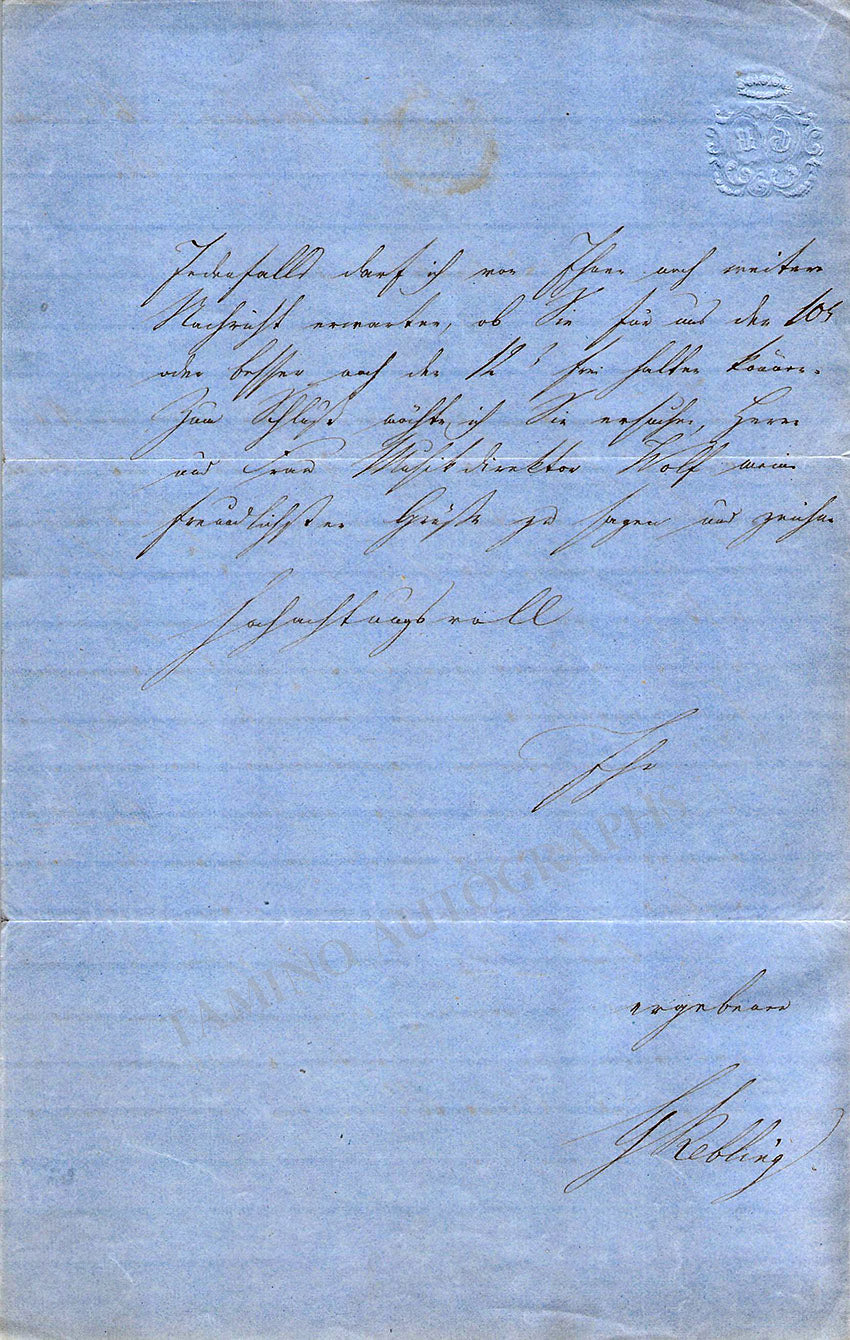 Jedenfalls darf ich von Ihnen noch weitere
Nachricht erwarten, ob Sie für uns den 10t
oder besser noch den 12t frei halten können.
Zum Schluß möchte ich Sie ersuchen, Herrn
und Frau Musikdirektor Wolf meine
freundlichsten Grüße zu sagen und zeichne
hochachtungsvoll
Ihr
TAMINO AUTOGRAPHS
ergebener
G Rebling